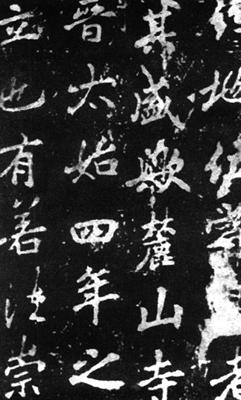 地位嘗者
其盛歟麓山寺
晉太始四年之
立也有若法崇